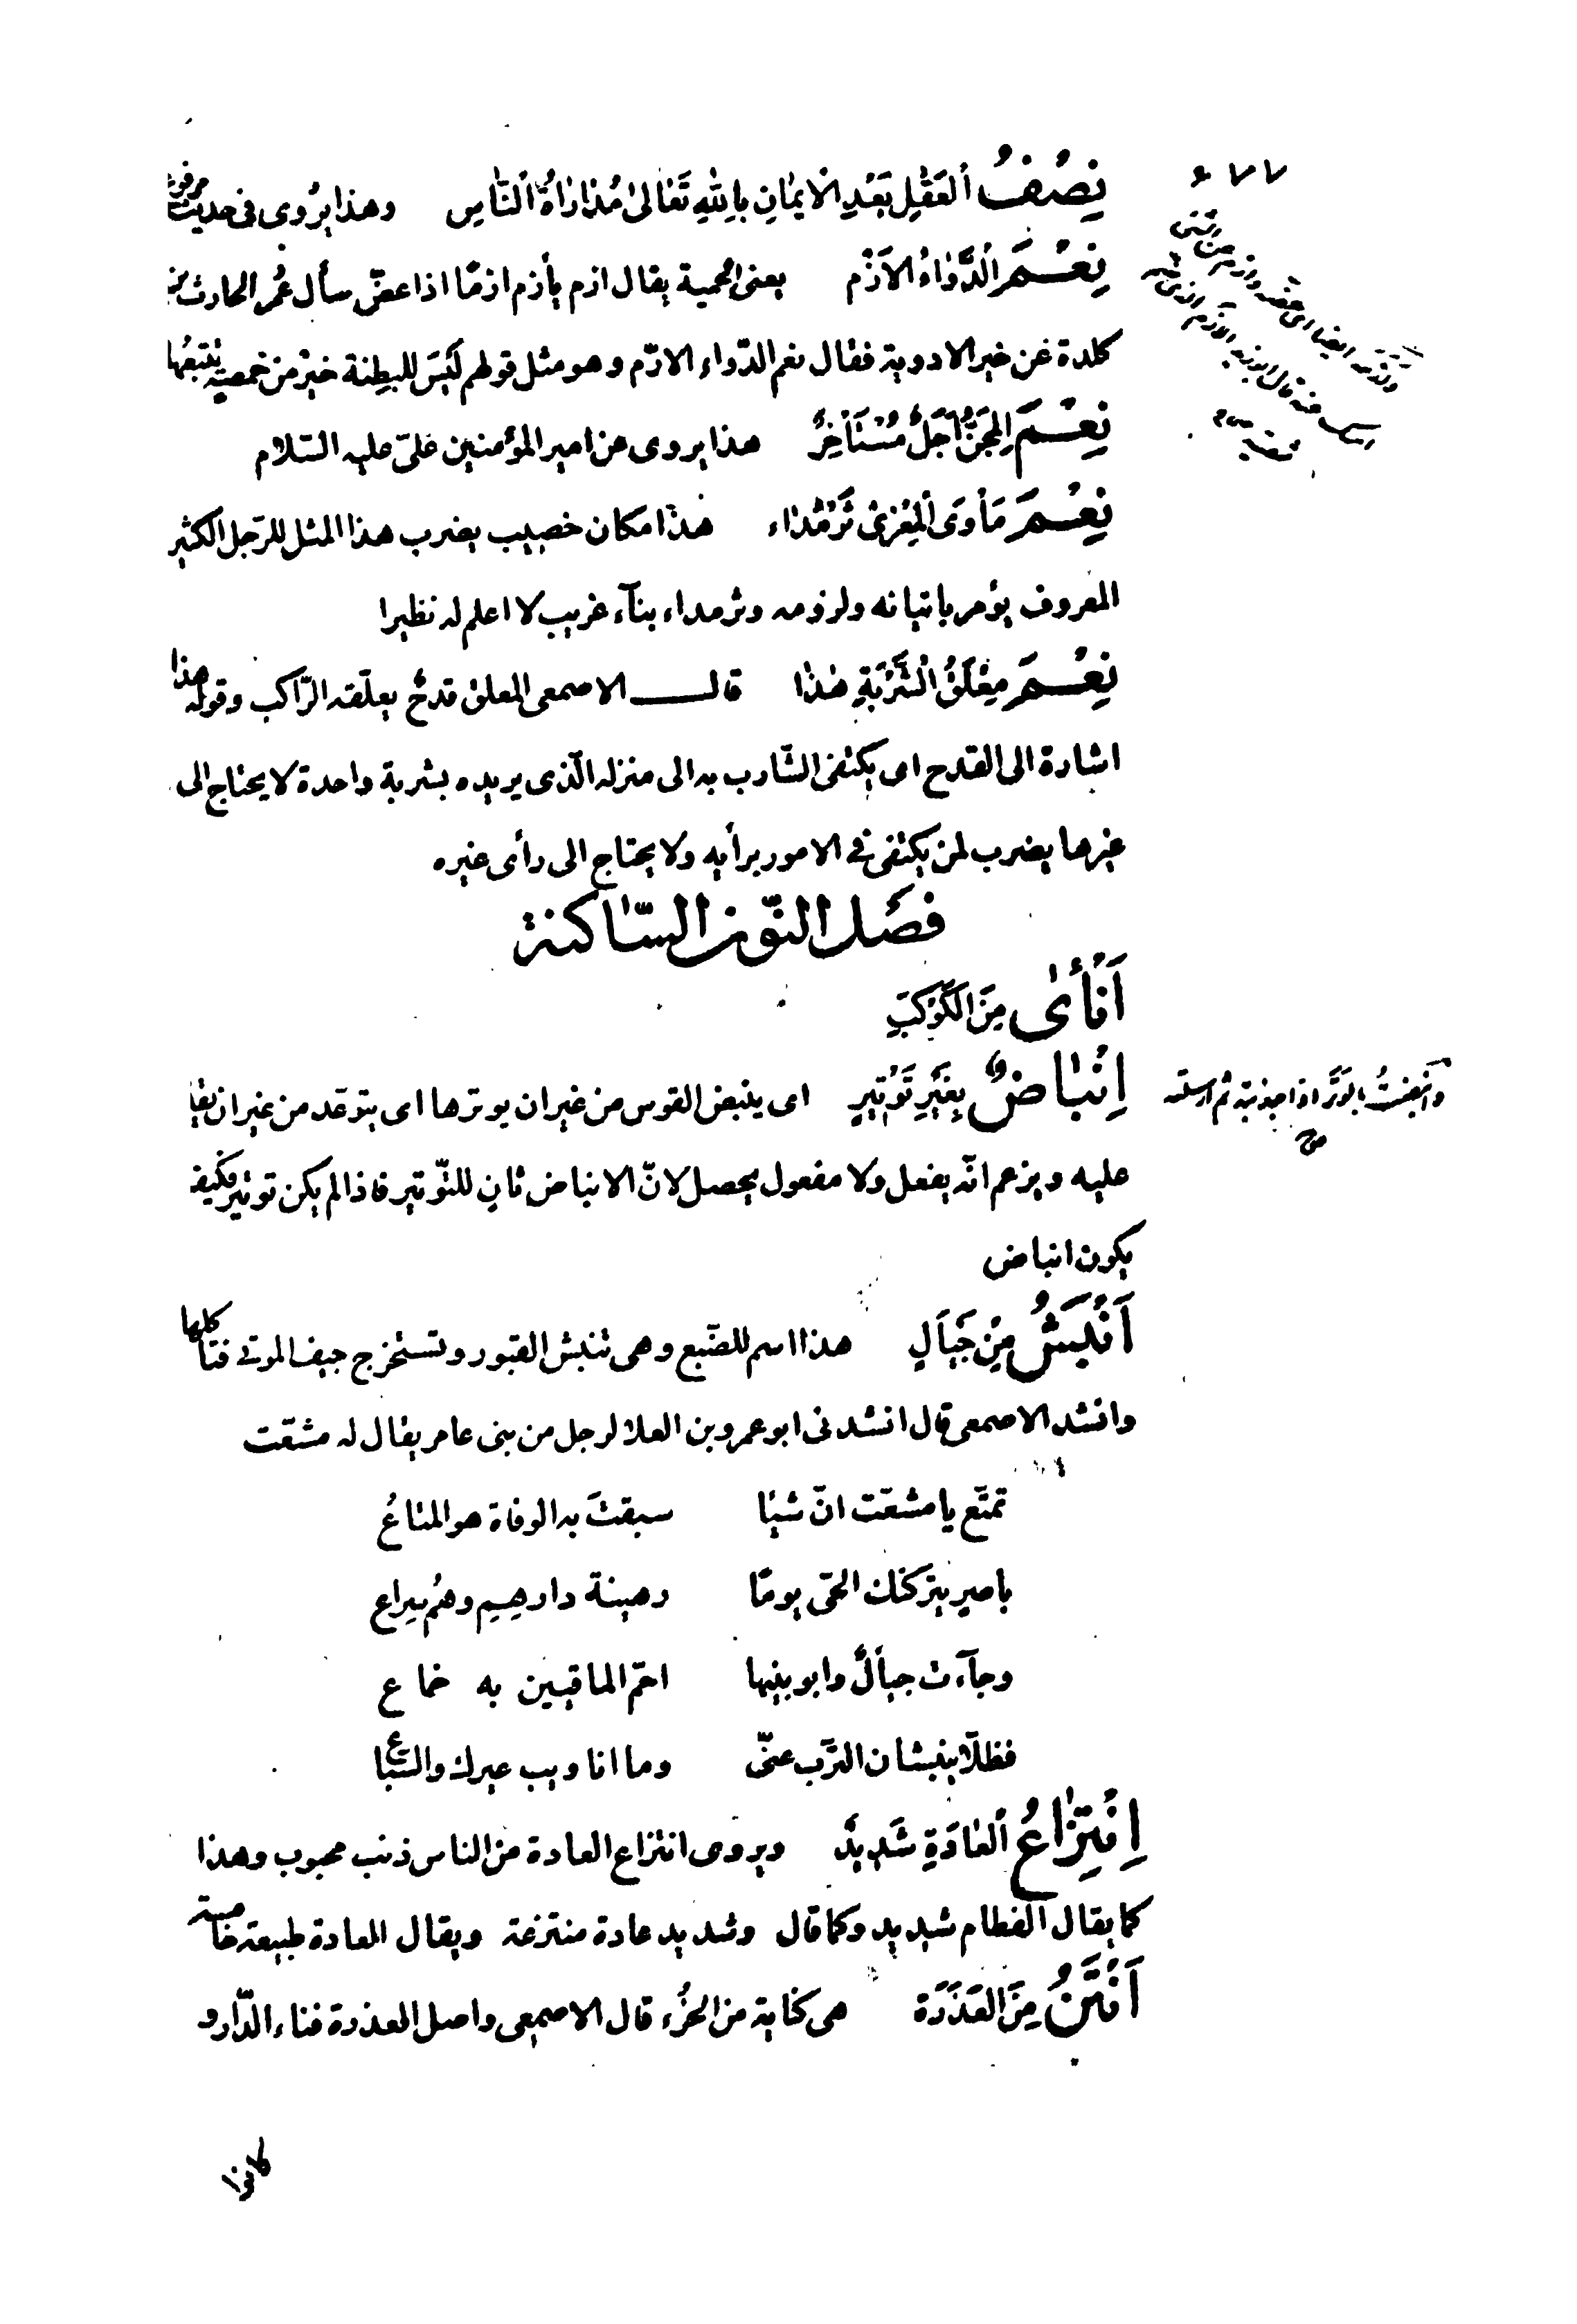 ٦٧٧
نِصْفُ الْعَقْلِ بَعْدِ الْايمٰانِ بِاللهِ تَعٰالىٰ مُدٰارٰاةُ النّٰاسِ وهذا يُروى فى حديث مرفوع
نِعْمَ الْدَّوٰاءُ الْاَزْم يعنى الحمية يقال ازم يأزم ازمًا اذا عضّ سأل عُمر الحارث بن
كلدة عن خير الادوية فقال نعم الدّواء الازم وهو مثل قولهم لَيْسَ للبِطنة خيرٌ من خمصة يتبعُها
نِعْمَ الْمِجَنُّ اَجَلٌ مُسْتَأْخِرٌ هذا يروى عن امير المؤمنين علىّ عليه السّلام
نِعْمَ مَأْوَى الْمِعْزىٰ ثَرْمَدٰاء هذا مكان خصيب يضرب هذا المثل للرّجل الكثير
المعروف يؤمر باتيانه ولزومه وثرمداء بنآء غريب لا اعلم له نظيرا
نِعْمَ مِعْلَقُ الْشَّرْبَةِ هٰذٰا قال الاصمعى المعلق قدحٌ يعلّقه الرّاكب وقوله هذا
اشارة الى القدح اى يكتفى الشّارب به الى منزله الّذى يريده بشربة واحدة لا يحتاج الى
غيرها يضرب لمن يكتفى فى الامور برأيه ولا يحتاج الى رأى غيره
فصْل النّون السّاكنة
اَنْأىٰ مِنَ الْكَوْكَبِ
اِنْبٰاضٌ بِغَيْرِ تَوْتيرٍ اى ينبض القوس من غير ان يوترها اى يتوعّد من غير ان يقد
وَاَنْبَضْتُ الوَتَرَ اذا جذبته ثم ارسلته
ص
عليه ويزعم انّه يفعل ولا مفعول يحصل لانّ الانباض ثانٍ للتّوتير فاذا لم يكن توتير فكيف
يكون انباض
اَنْبَشُ مِنْ جَيْأَلٍ هذا اسم للضّبع وهى تنبش القبور وتستخرج جيف الموتى فتأكلها
وانشد الاصمعى قال انشدنى ابو عمرو بن العلا لرجل من بنى عامر يقال له مشعّث
تمتّع يا مشعّث انّ شيئا سبقتَ به الوفاة هو المتاعُ
باصرٍ يتركنك الحىّ يومًا رهينة دارهم وهُم سراع
وجآءت جيألٌ وابو بنيها احمّ الماقيين به خماع
فظلّا ينبشان التّرب عنّى وما انا ويب غيرك والسّباع
اِنْتِزٰاعُ الْعٰادَةِ شَديدٌ ويروى انتزاع العادة من الناس ذنب محبوب وهذا
كما يقال الفطام شديد وكما قال وشديد عادة منتزعة ويقال العادة طبيعة خامسة
اَنْتَنُ مِنَ الْعَذِرَة هى كناية من الخُرْء قال الاصمعى واصل العذرة فناء الدّار و